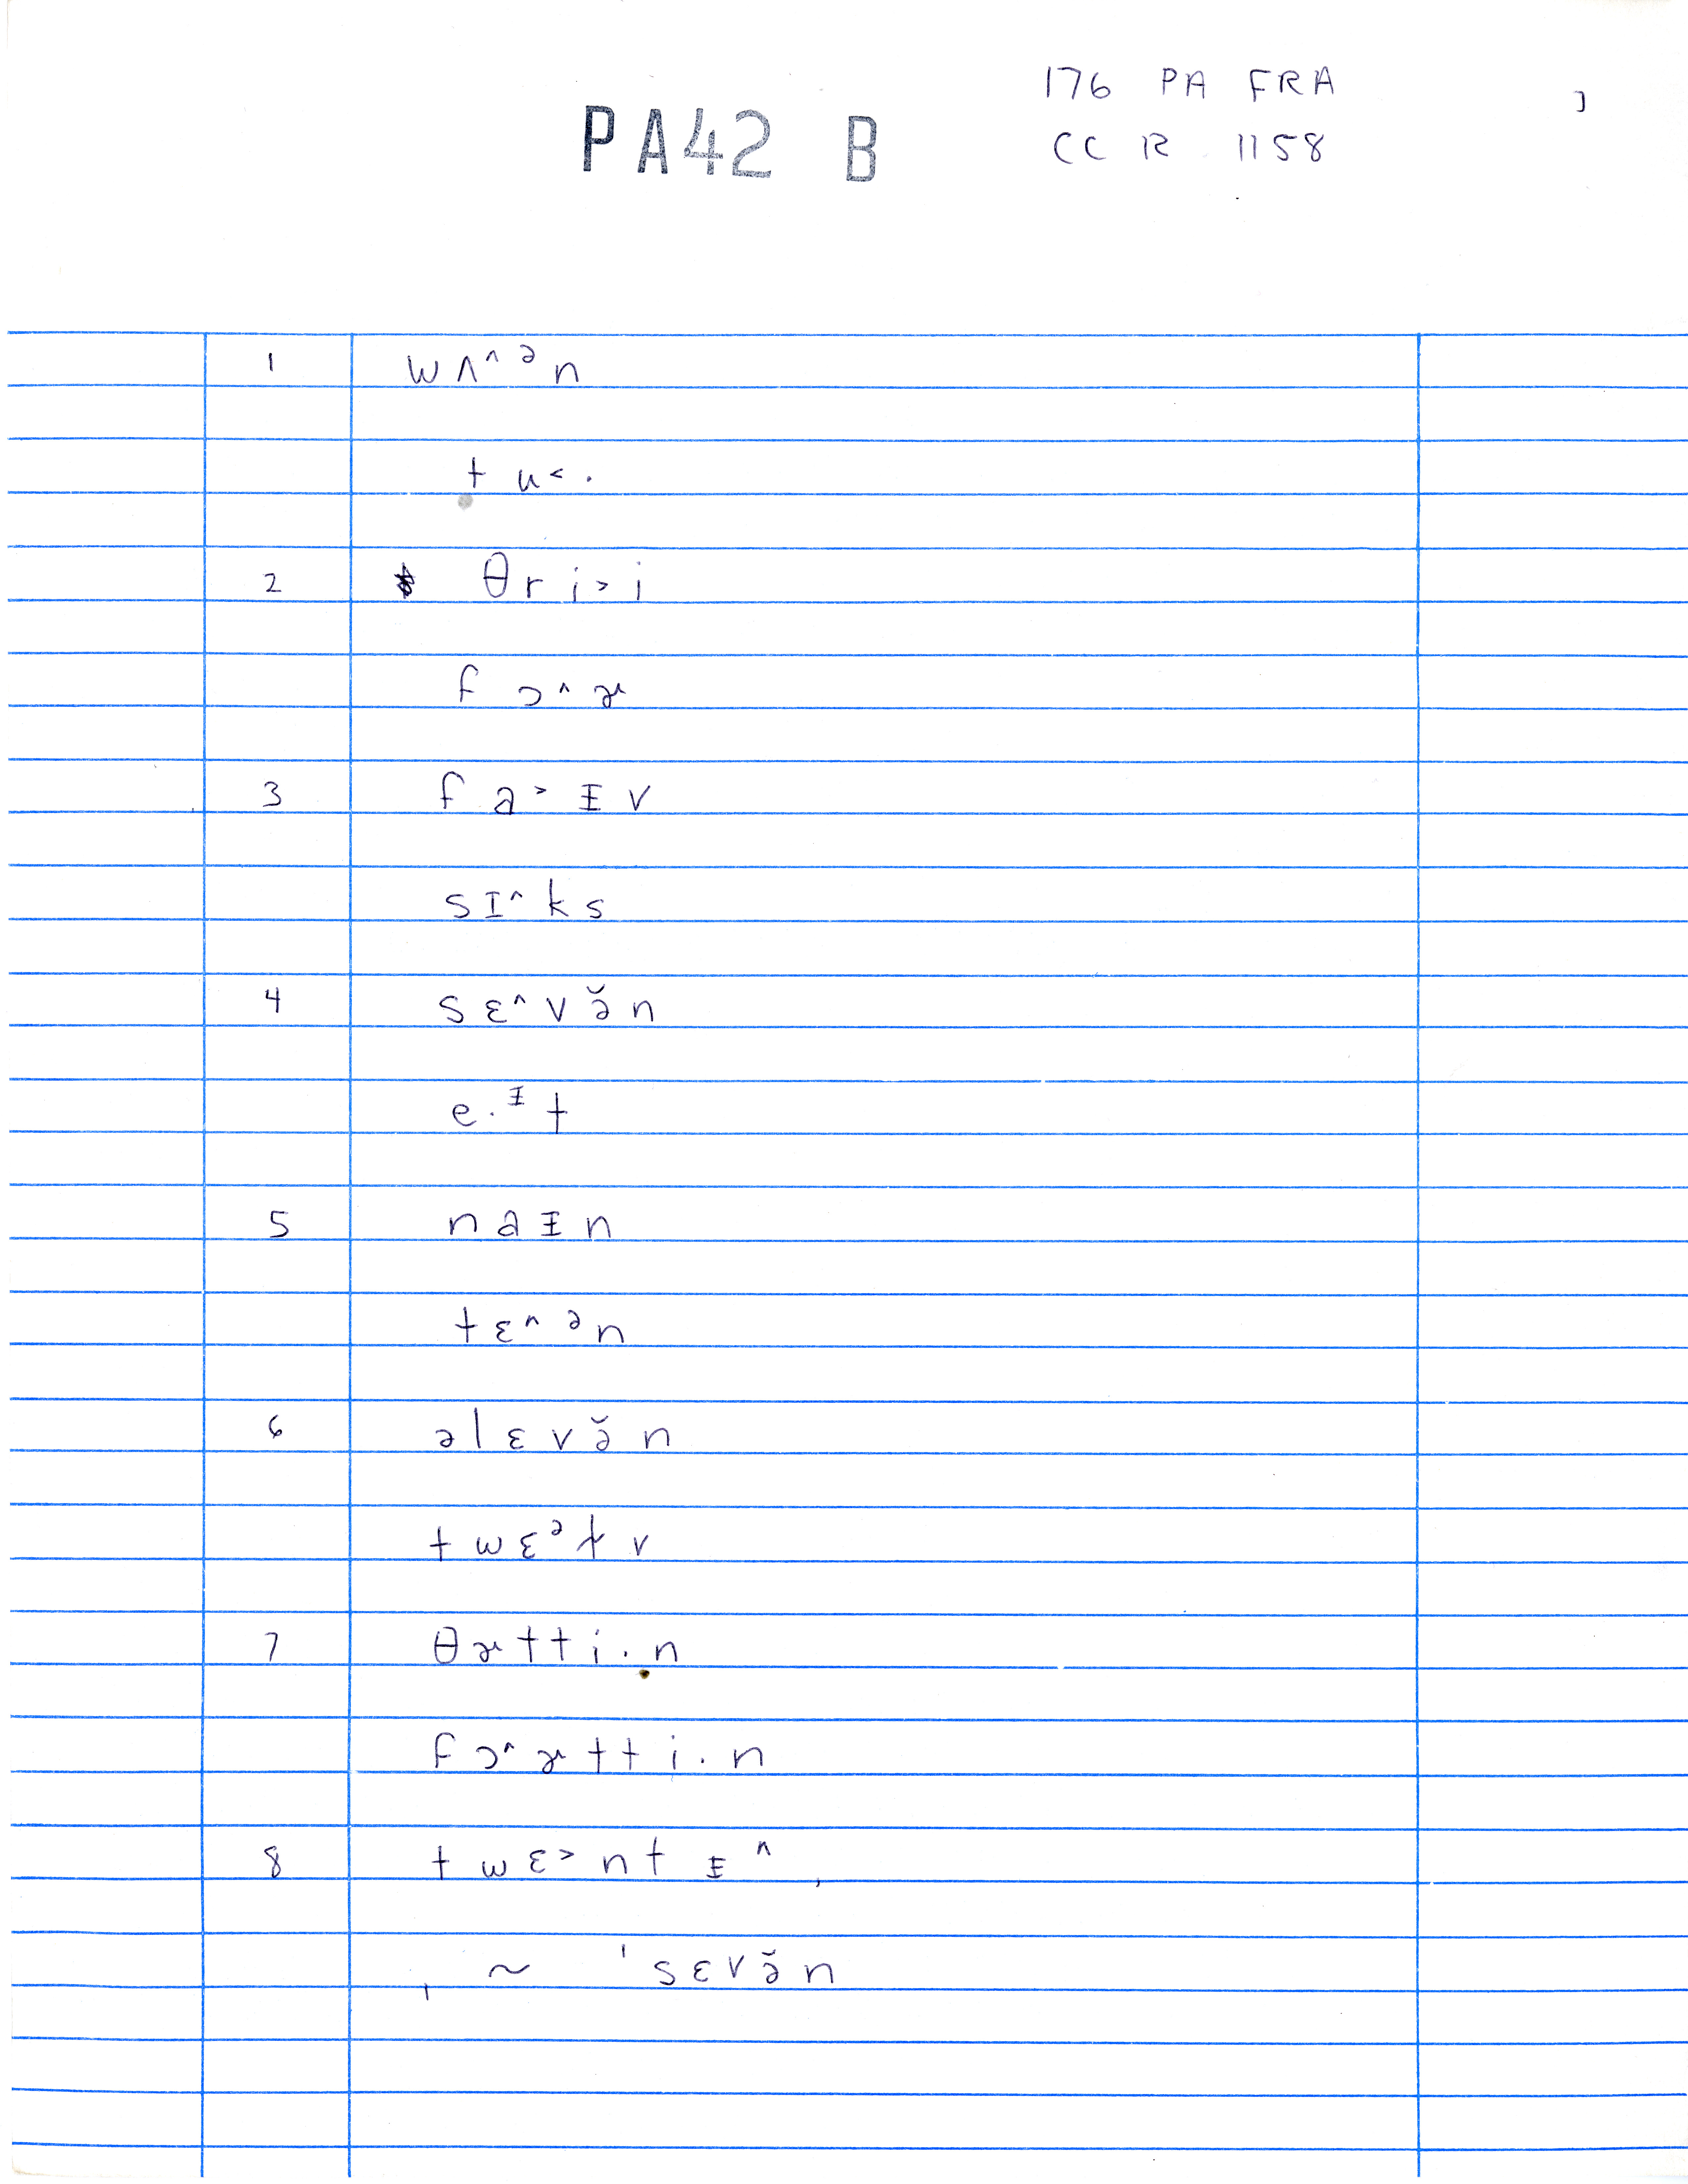 176 PA FRA
PA42 B
CC R 1158
1 wʌ^ᵊn
tu<.
2 θri>i
fɔ^ɚ
3 fa>ɪv
sɪ^ks
4 sɛ^və̆n
e.ᶧt
5 naᵻn
tɛ^ᵊn
6 əlɛvə̆n
twɛᵊɫv
7 θɚtti.n
fɔ^ɚtti.n
8 twɛ>ntᵻ^,
, ~ 'sɛvə̆n